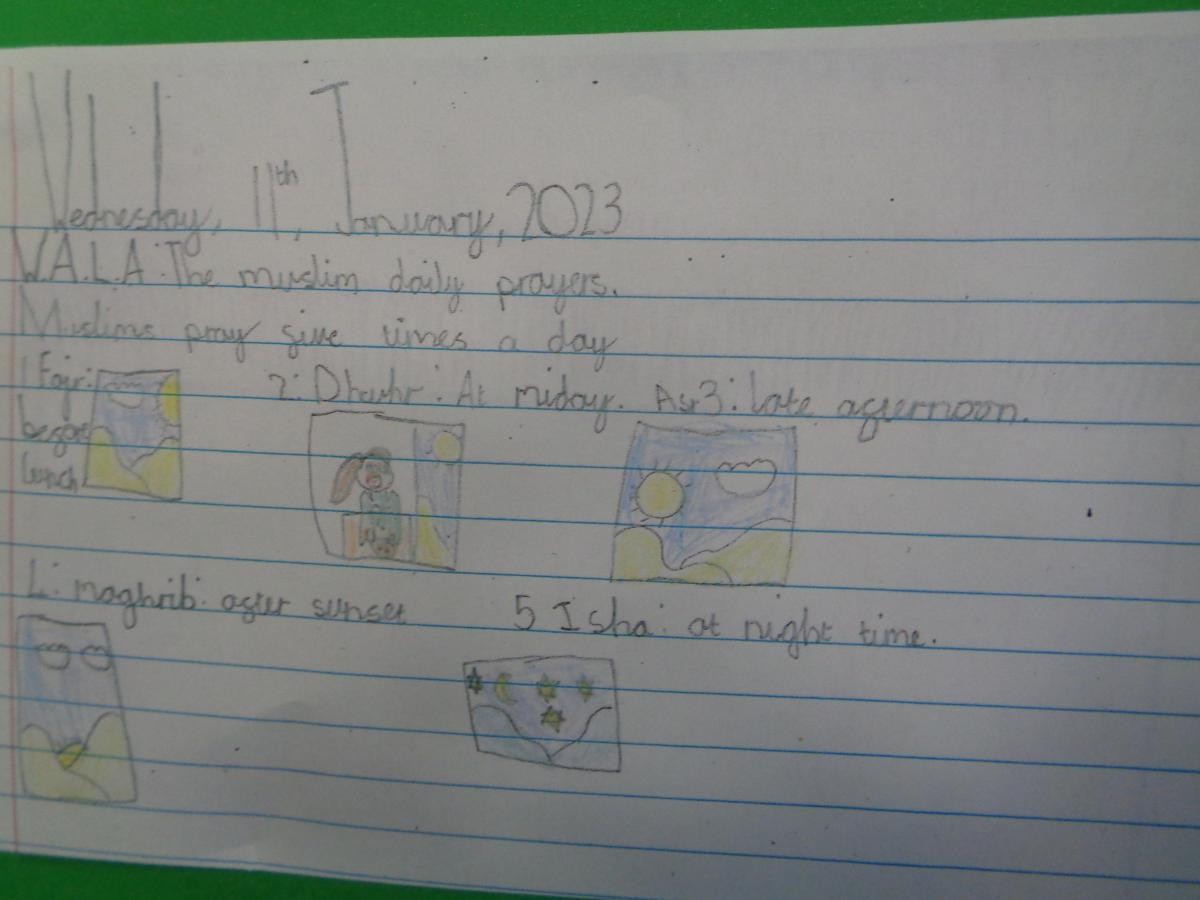 Wednesday, 11th, January, 2023
W.A.L.A: The muslim daily prayers.
Muslims pray give times a day
1 Fajr:
begore
lunch
2: Dhuhr: At miday. Asr3: late agternoon.
4: maghrib: agter sunset
5 Isha: at night time.